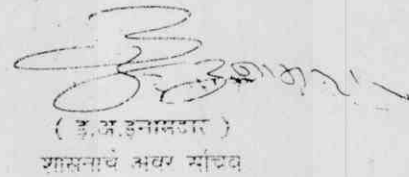 ( इ.अ.इनामदार )
शासनाचे अवर सचिव